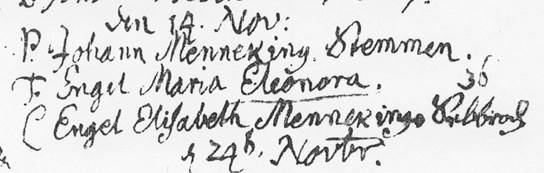 den 14. Nov:
P. Johann Menneking. Stemmen.
T. Engel Maria Eleonora. 36
Engel Elisabeth Mennekings
d 24t. Novbr.